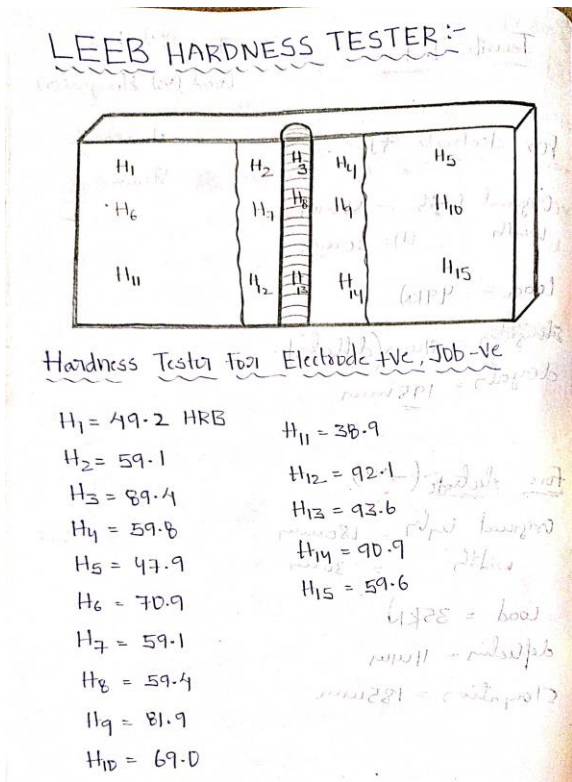 LEEB HARDNESS TESTER:-
H1 H2 H3 H4 H5
H6 H7 H8 H9 H10
H11 H12 H13 H14 H15
Hardness Tester For Electrode +ve, Job -ve
H1 = 49.2 HRB
H2 = 59.1
H3 = 89.4
H4 = 59.8
H5 = 47.9
H6 = 70.9
H7 = 59.1
H8 = 59.4
H9 = 81.9
H10 = 69.0
H11 = 38.9
H12 = 92.1
H13 = 93.6
H14 = 90.9
H15 = 59.6